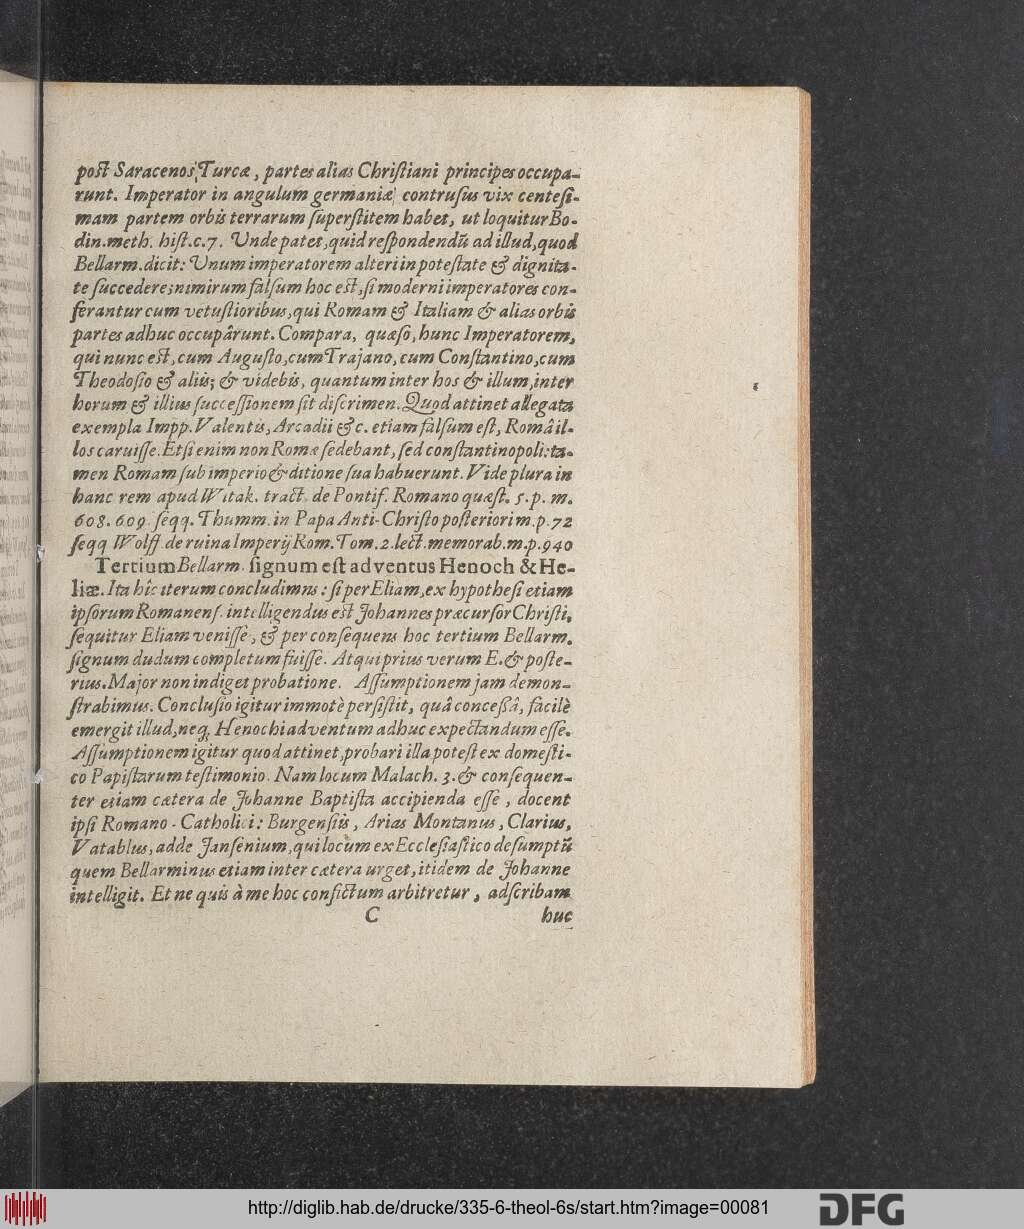 post Saracenos, Turcæ, partes alias Christiani principes occupa-
runt. Imperator in angulum germaniæ contrusus vix centesi-
mam partem orbis terrarum superstitem habet, ut loquitur Bo-
din. meth. hist. c. 7. Unde patet, quid respondendũ ad illud, quod
Bellarm. dicit: Unum imperatorem alteri in potestate & dignita-
te succedere; nimirum falsum hoc est, si moderni imperatores con-
ferantur cum vetustioribus, qui Romam & Italiam & alias orbis
partes adhuc occupârunt. Compara, quæso, hunc Imperatorem,
qui nunc est, cum Augusto, cum Trajano, cum Constantino, cum
Theodosio & aliis; & videbis, quantum inter hos & illum, inter
horum & illius successionem sit discrimen. Quod attinet allegata
exempla Impp. Valentis, Arcadii & c. etiam falsum est, Româ il-
los caruisse. Etsi enim non Romæ sedebant, sed constantinopoli: ta-
men Romam sub imperio & ditione sua habuerunt. Vide plura in
hanc rem apud Witak. tract. de Pontif. Romano quæst. 5. p. m.
608. 609. seqq. Thumm. in Papa Anti-Christo posteriori m. p. 72
seqq Wolff. de ruina Imperij Rom. Tom. 2. lect. memorab. m. p. 940
Tertium Bellarm. signum est adventus Henoch & He-
liæ. Ita hîc iterum concludimus: si per Eliam, ex hypothesi etiam
ipsorum Romanens. intelligendus est Johannes præcursor Christi,
sequitur Eliam venisse, & per consequens hoc tertium Bellarm.
signum dudum completum fuisse. Atqui prius verum E. & poste-
rius. Major non indiget probatione. Assumptionem jam demon-
strabimus. Conclusio igitur immotè persistit, quâ concessâ, facilè
emergit illud, neq; Henochi adventum adhuc expectandum esse.
Assumptionem igitur quod attinet, probari illa potest ex domesti-
co Papistarum testimonio. Nam locum Malach. 3. & consequen-
ter etiam cætera de Johanne Baptista accipienda esse, docent
ipsi Romano-Catholici: Burgensiis, Arias Montanus, Clarius,
Vatablus, adde Jansenium, qui locum ex Ecclesiastico desumptũ
quem Bellarminus etiam inter cætera urget, itidem de Johanne
intelligit. Et ne quis à me hoc confictum arbitretur, adscribam
C huc
http://diglib.hab.de/drucke/335-6-theol-6s/start.htm?image=00081
DFG